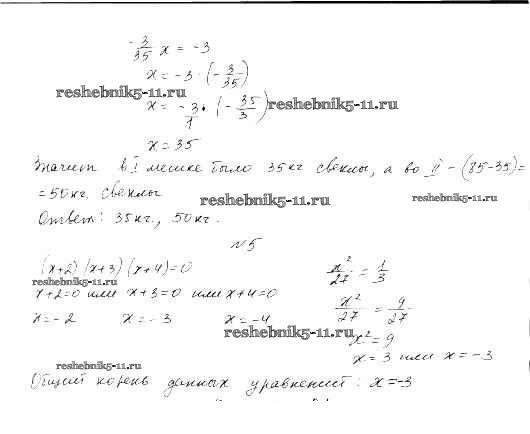 -3/35 x = -3
x = -3 · (-3/35)
reshebnik5-11.ru
x = -3/1 · (-35/3) reshebnik5-11.ru
x = 35
Значит в I мешке было 35 кг свеклы, а во II - (85-35)=
= 50 кг. свеклы
reshebnik5-11.ru reshebnik5-11.ru
Ответ: 35 кг., 50 кг.
№5
(x+2)(x+3)(x+4)=0
reshebnik5-11.ru
x+2=0 или x+3=0 или x+4=0
x=-2 x=-3 x=-4
x²/27 = 1/3
x²/27 = 9/27
reshebnik5-11.ru
x² = 9
x = 3 или x = -3
reshebnik5-11.ru
Общий корень данных уравнений: x=-3